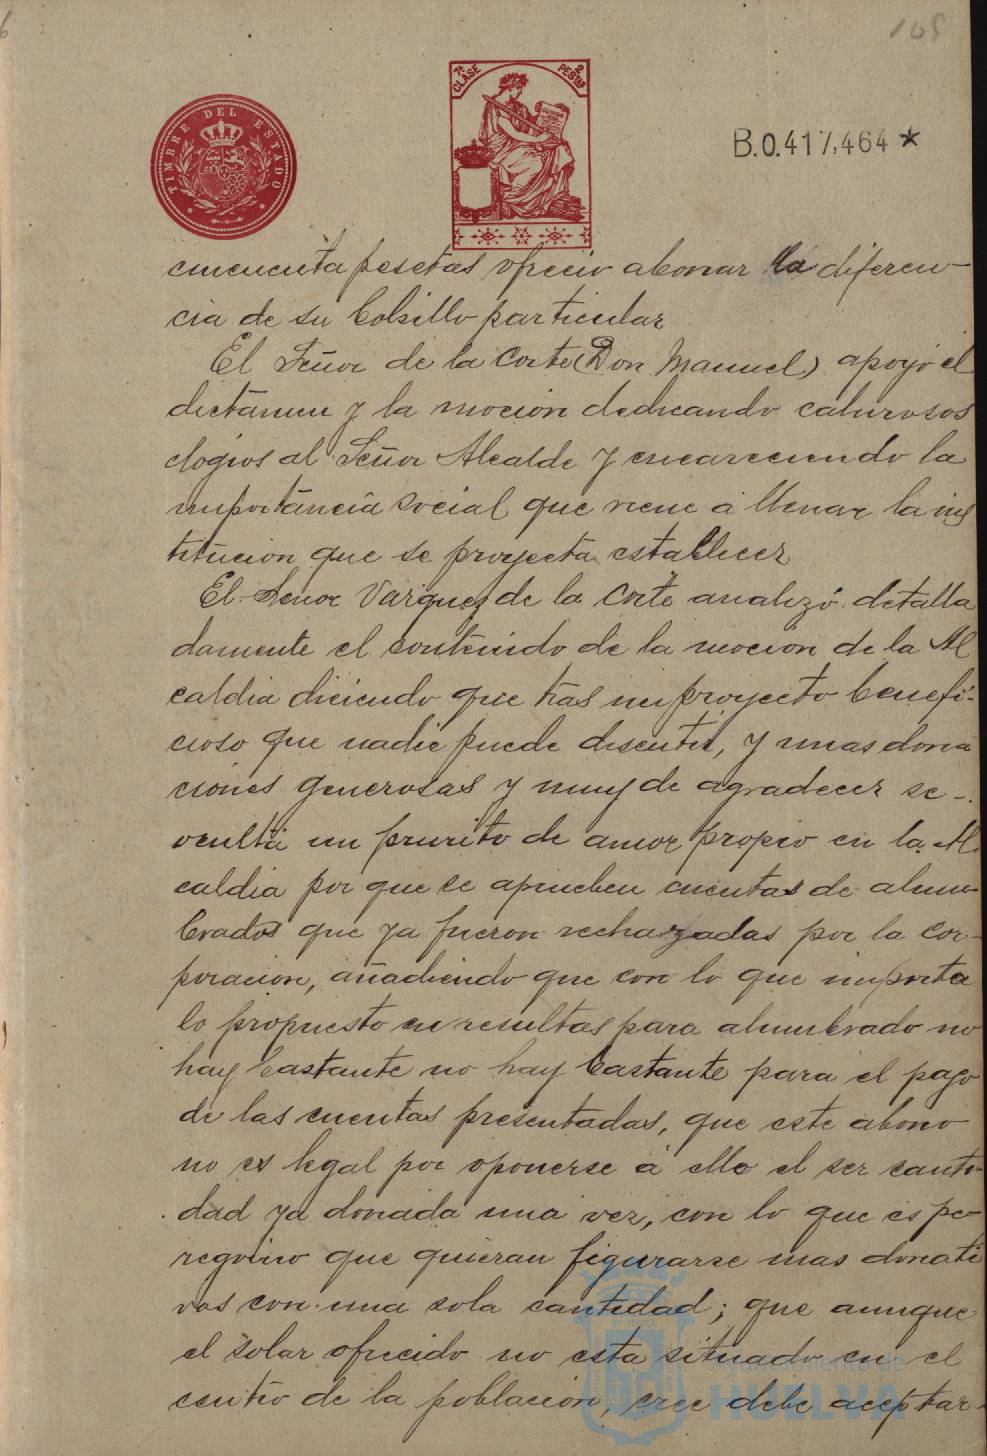 105
TIMBRE DEL ESTADO
7ª CLASE 2 PESTAS
B.0.417,464 *
cincuenta pesetas ofrecio abonar la diferen-
cia de su bolsillo particular
El Señor de la Corte (Don Manuel) apoyó el
dictámen y la mocion dedicando calurosos
elogios al Señor Alcalde y encareciendo la
importáncia social que viene á llenar la ins
titucion que se proyecta establecer
El Señor Vazquez de la Corte analizó detalla
damente el contenido de la mocion de la Al
caldia diciendo que tras un proyecto benefi-
cioso que nadie puede discutir, y unas dona
ciones generosas y muy de agradecer se -
oculta un prurito de amor propio en la Al
caldia por que se aprueben cuentas de alum-
brados que ya fueron rechazadas por la cor-
poracion, añadiendo que con lo que importa
lo propuesto en resultas para alumbrado no
hay bastante no hay bastante para el pago
de las cuentas presentadas, que este abono
no es legal por oponerse á ello el ser canti-
dad ya donada una vez, con lo que es pe
regrino que quieran figurarse mas donati
vos con una sola cantidad; que aunque
el solar ofrecido no esta situado en el
centro de la poblacion, cree debe aceptar-
Ayuntamiento de
HUELVA